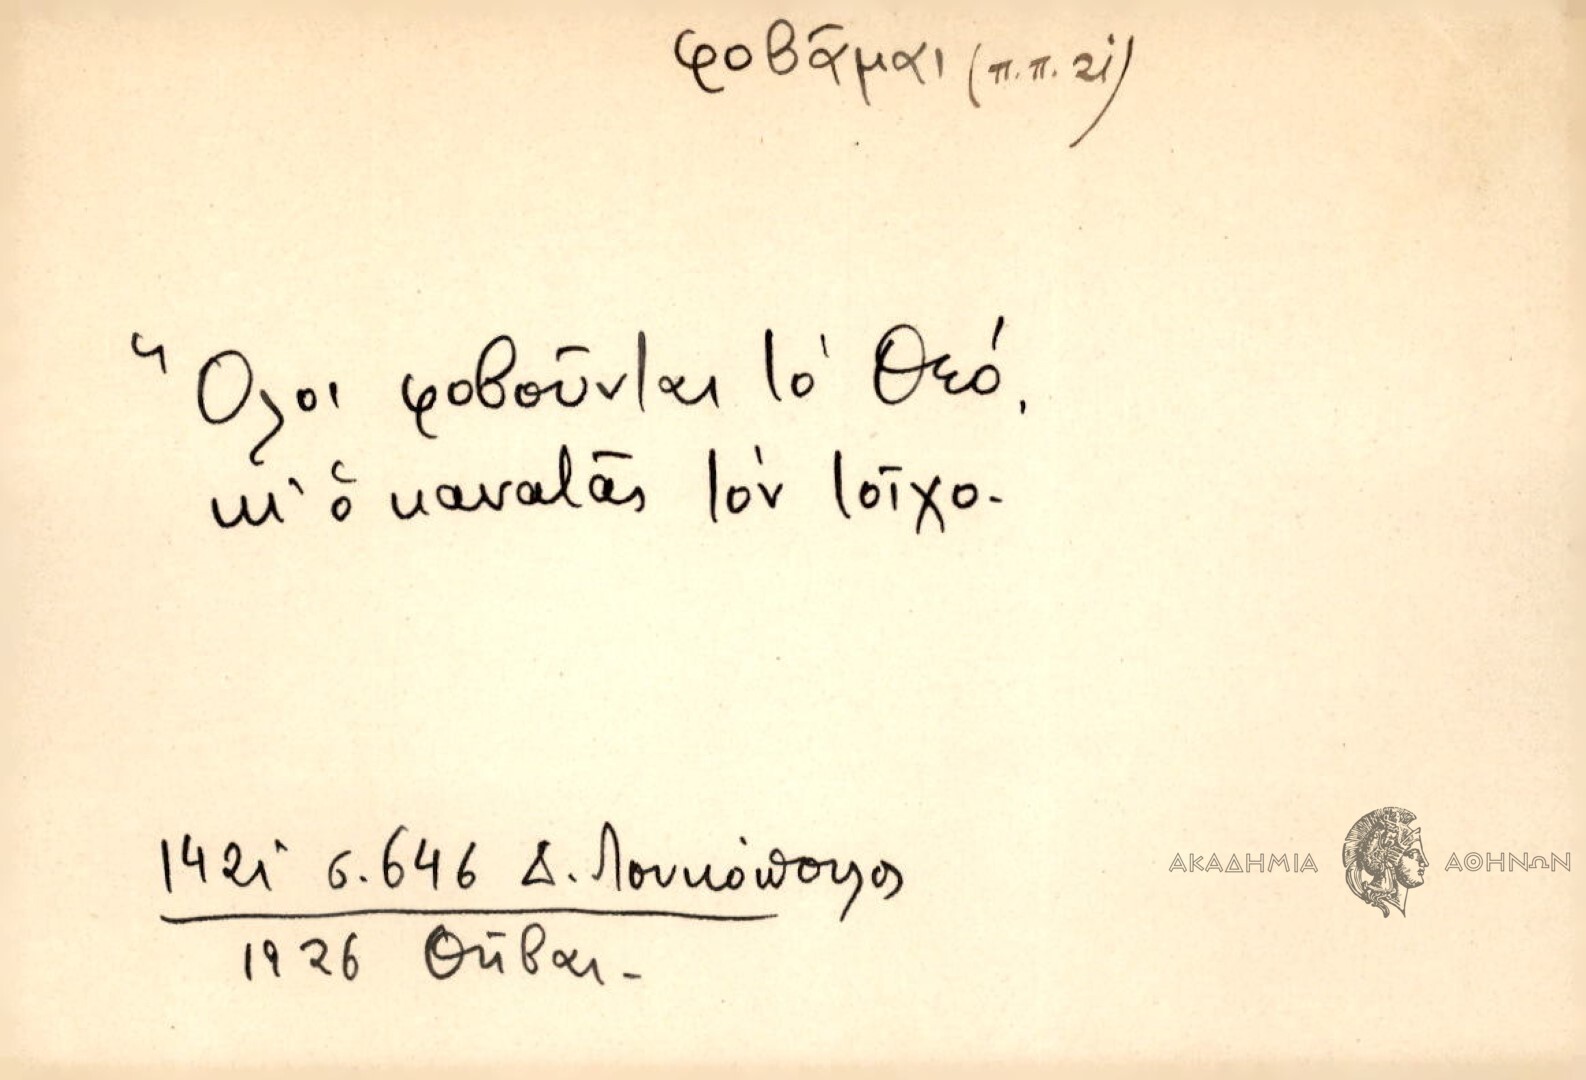 φοβᾶμαι (π.π. 2i)
Ὅλοι φοβοῦνται τὸ Θεό,
κι' ὁ κανατᾶς τὸν τοῖχο.
142i σ. 646 Δ. Λουκόπουλος
1926 Θῆβαι.
ΑΚΑΔΗΜΙΑ ΑΘΗΝΩΝ